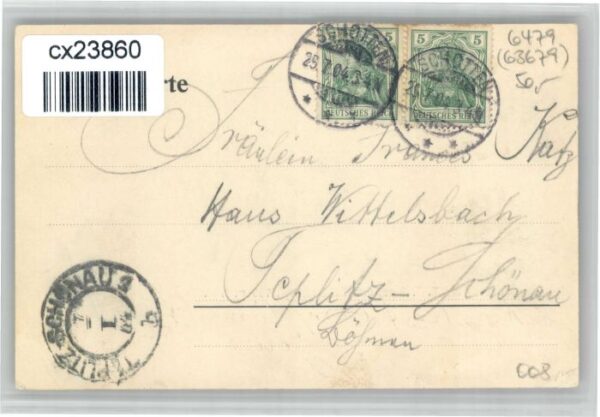 cx23860
6479
(63679)
50,-
5 5 5
DEUTSCHES REICH DEUTSCHES REICH
SCHOTTEN SCHOTTEN
25.7.04
rte
Fräulein Frances Katz
Haus Wittelsbach
Teplitz-Schönau
Böhmen
TEPLITZ-SCHÖNAU 1
b
008